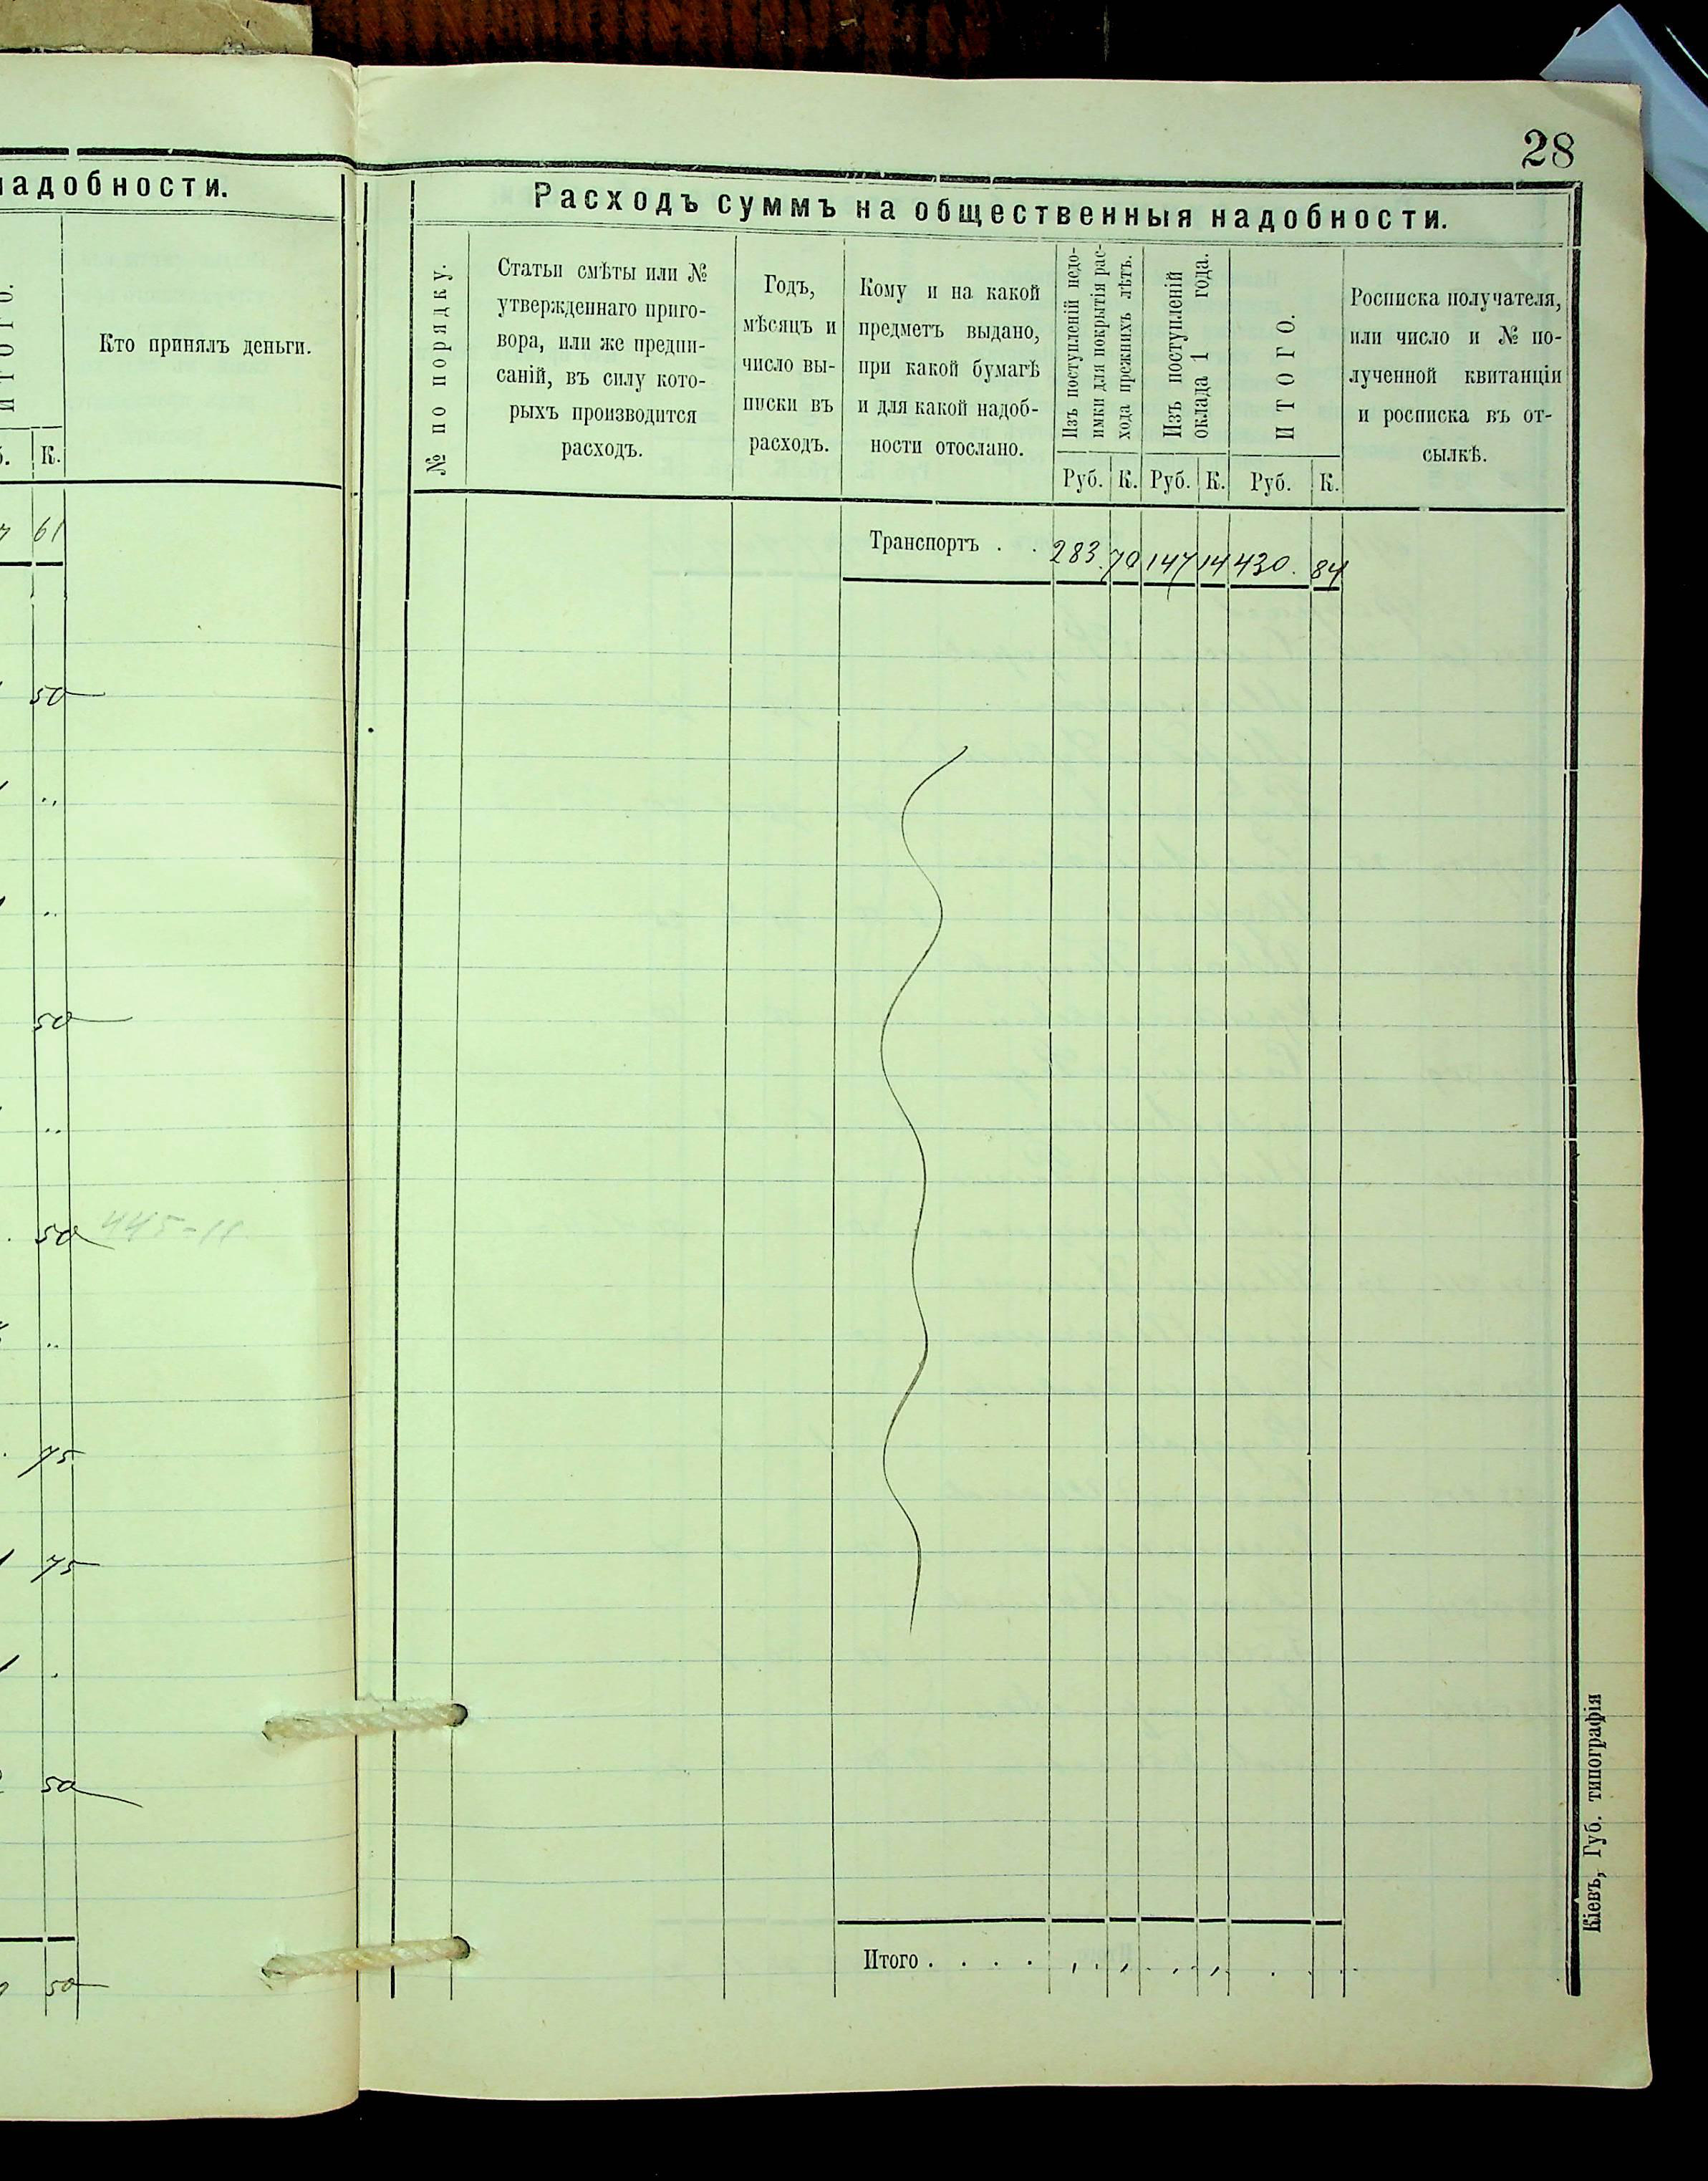 28
надобности.
ИТОГО.
Кто принялъ деньги.
К.
61
50
50
50 445-11
75
75
50
50
Расходъ суммъ на общественныя надобности.
№ по порядку.
Статьи смѣты или №
утвержденнаго приго-
вора, или же предпи-
саній, въ силу кото-
рыхъ производится
расходъ.
Годъ,
мѣсяцъ и
число вы-
писки въ
расходъ.
Кому и на какой
предметъ выдано,
при какой бумагѣ
и для какой надоб-
ности отослано.
Изъ поступленій недо-
имки для покрытія рас-
хода прежнихъ лѣтъ.
Изъ поступленій
оклада 1 года.
ИТОГО.
Росписка получателя,
или число и № по-
лученной квитанціи
и росписка въ от-
сылкѣ.
Руб. К. Руб. К. Руб. К.
Транспортъ . . 283. 70 147 14 430. 84
Итого . . . .
Кіевъ, Губ. типографія